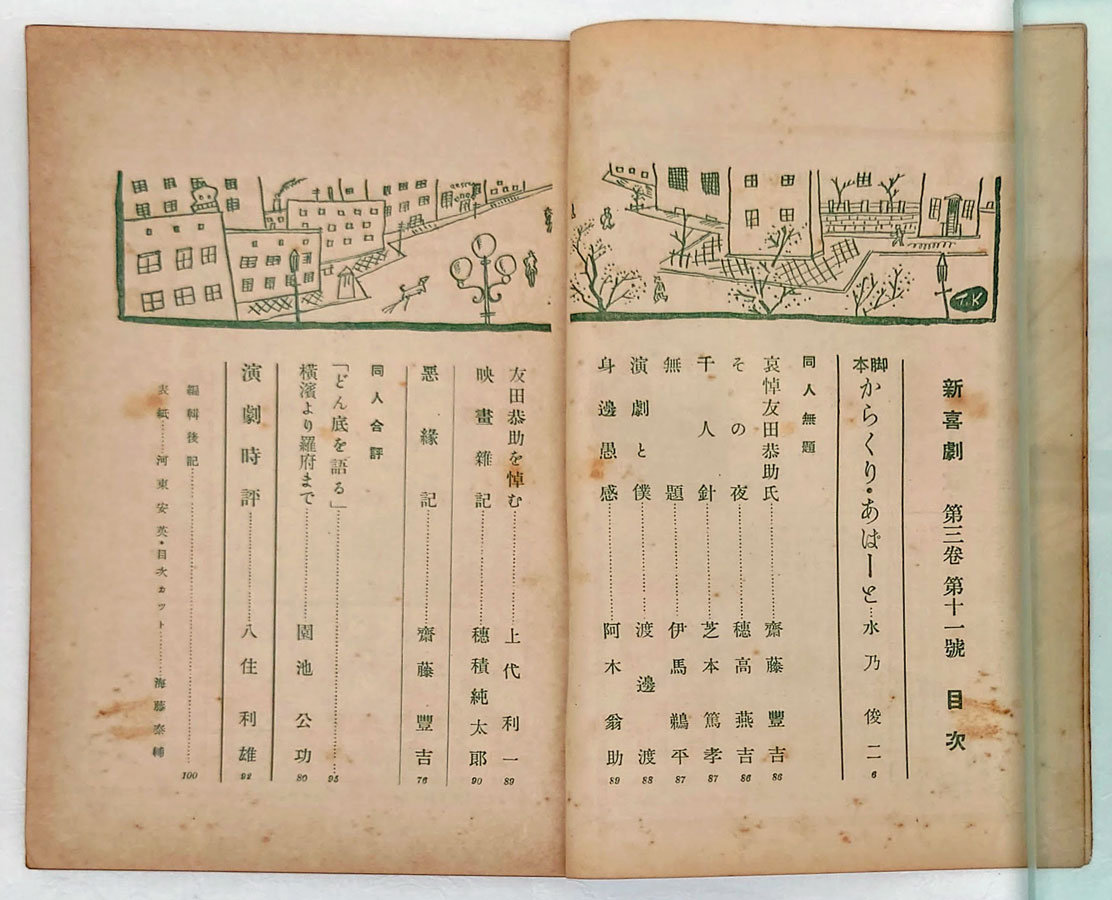 新喜劇 第三卷 第十一號 目次
脚本 からくり・あぱーと…水乃俊二 6
同人無題
哀悼友田恭助氏…齋藤豐吉 86
その夜…穗高燕吉 86
千人針…芝本篤孝 87
無題…伊馬鵜平 87
演劇と僕…渡邊渡 88
身邊愚感…阿木翁助 89
友田恭助を悼む…上代利一 89
映畫雜記…穗積純太郎 90
惡緣記…齋藤豐吉 76
同人合評
「どん底を語る」…95
橫濱より羅府まで…園池公功 80
演劇時評…八住利雄 92
編輯後記…100
表紙…河東安英・目次カット…海藤泰輔
T.K